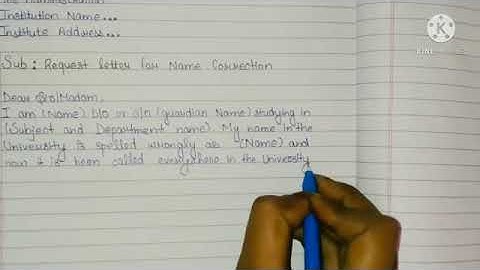 The Administration
Institution Name...
Institute Address...
Sub: Request letter for Name Correction
Dear Sir/Madam,
I am (Name) D/o or S/o (guardian Name) studying in
(Subject and Department name). My name in the
University is spelled wrongly as (Name) and
now it is been called everywhere in the University
K
KINE